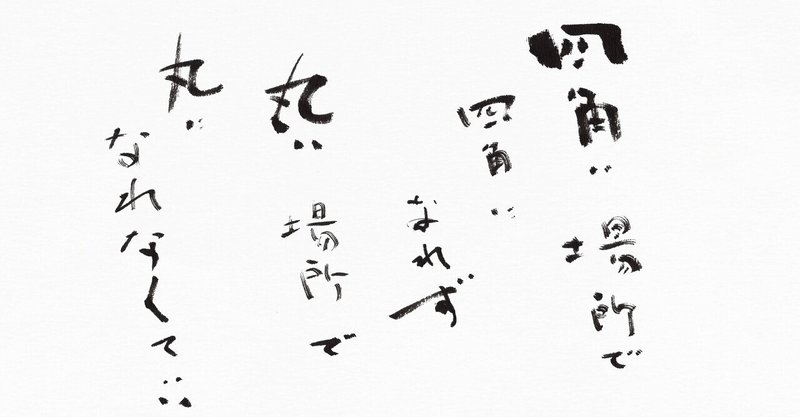 四角い場所で
四角に
なれず
丸い場所で
丸に
なれなくて…